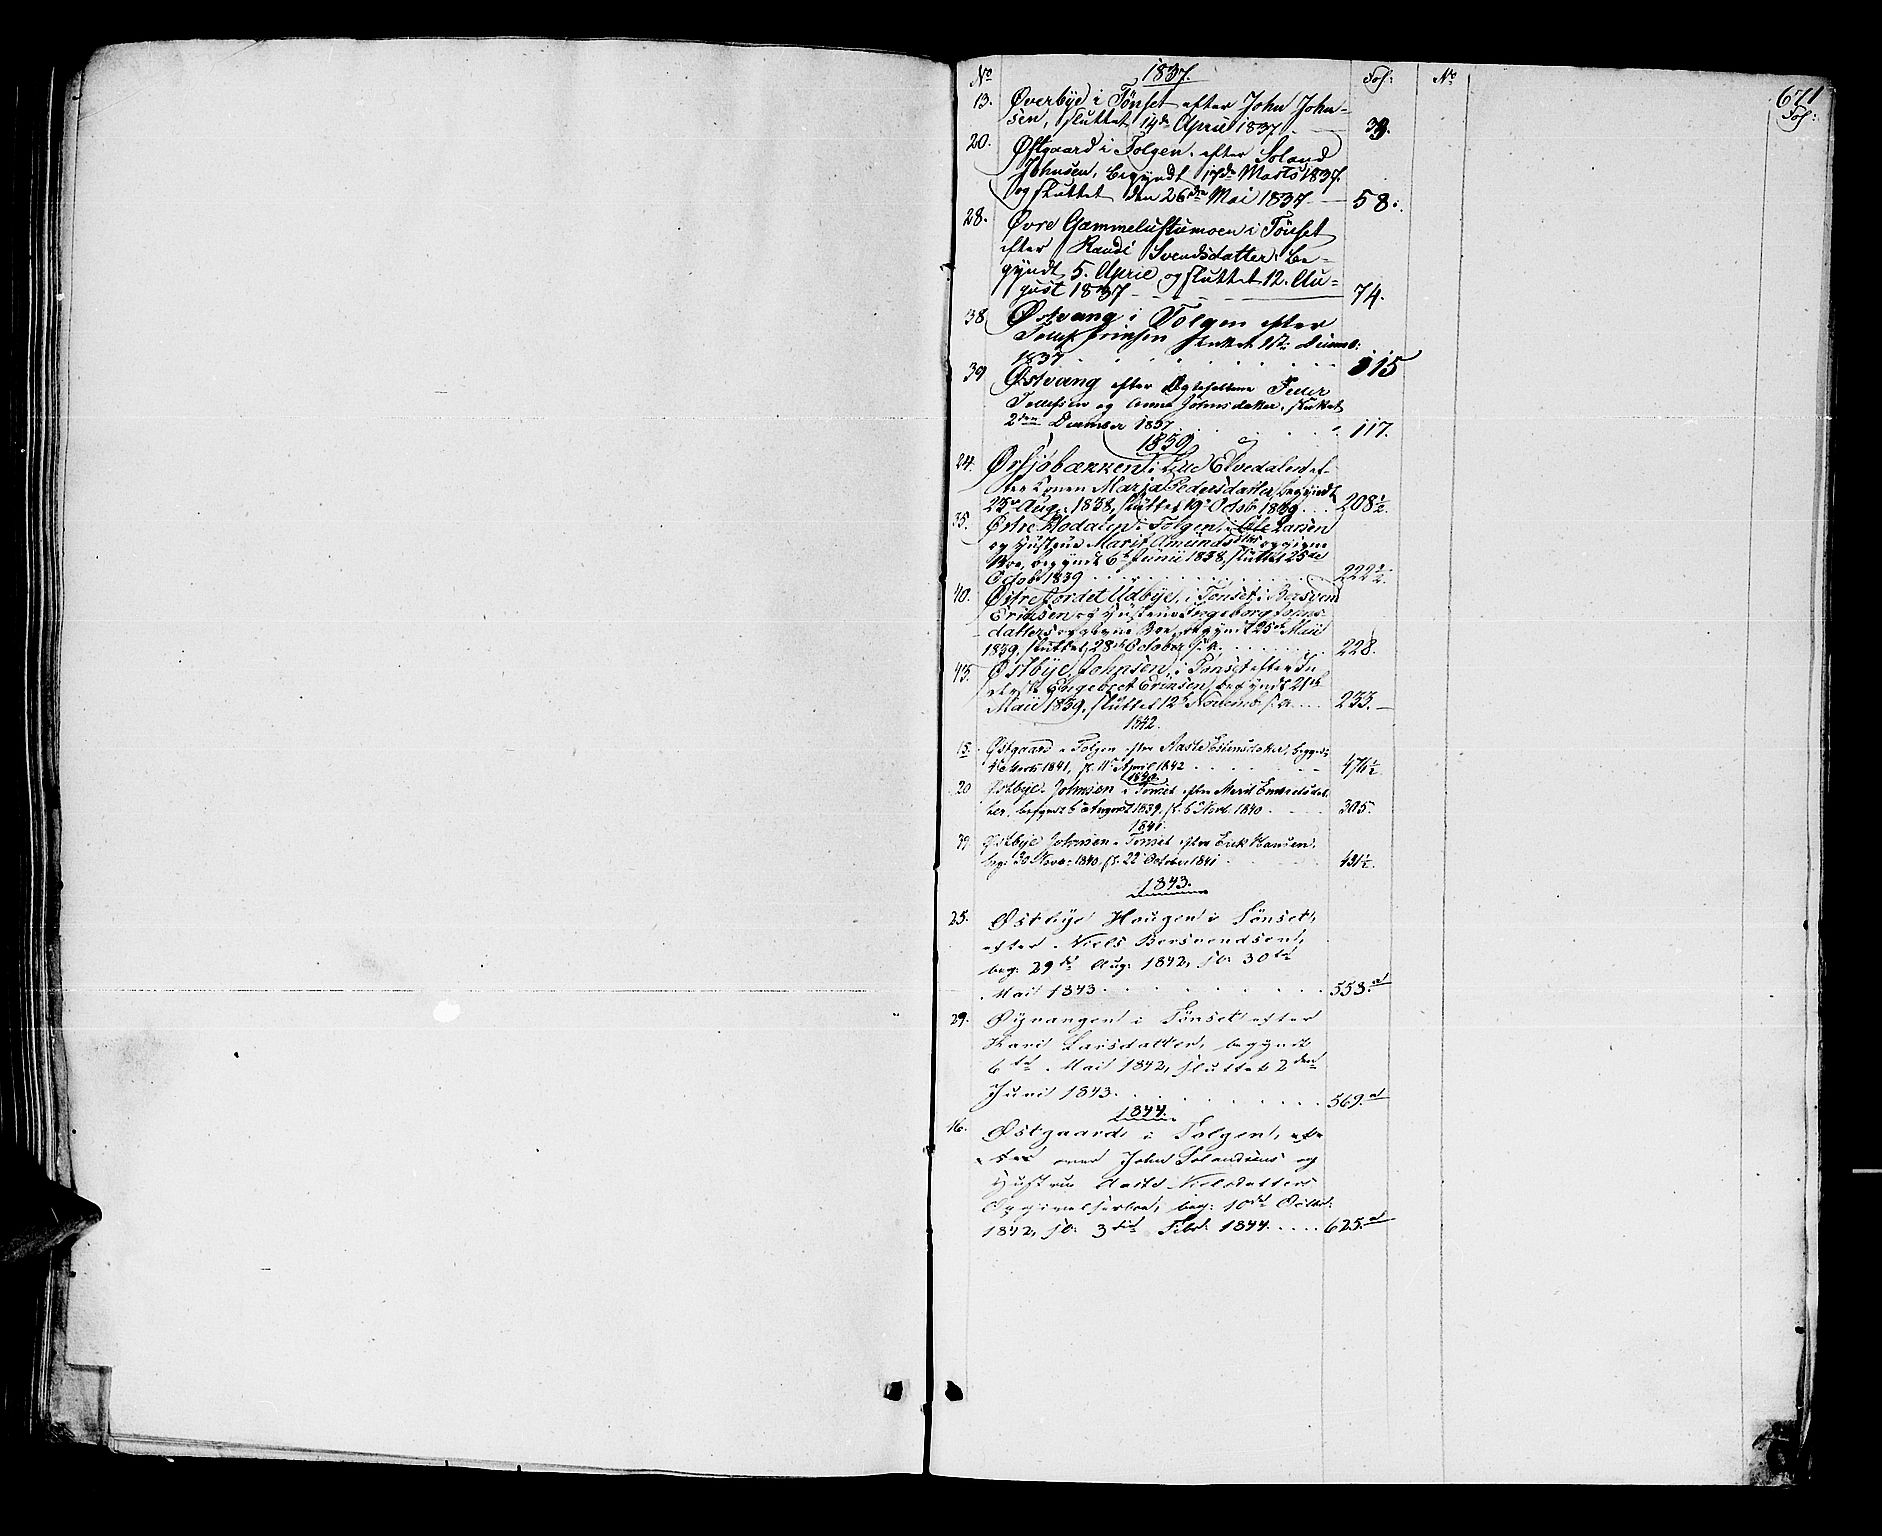 671
No 1837. Fol: No Fol:
13. Øverbye i Tønset efter John John-
sen, sluttet 14de April 1837. 39.
20. Østgaard i Tolgen, efter Esland
Johnsen, begyndt 17de Marts 1837.
og sluttet den 26de Mai 1837 58.
28. Øvre Gammelustumoen i Tönset
efter Randi Svendsdatter, be-
gyndt 5. April og sluttet 12. Au-
gust 1837 74.
38. Østvang i Tolgen efter
sluttet 1ste Decemb:
1837 115
39 Østvang efter Ægtefolkene Peder
Tollefsen og Anne Johnsdatter, sluttet
2den December 1837 117.
1839
24. i Lille Elvedalen ef-
ter Konen Marja Pedersdatter, begyndt
23de Aug. 1838, sluttet 19 Octob 1839 208½.
35. Østre Hodalen i Tolgen, i Ole Larsen
og Hustrue Marit Amundsdtrs opgivne
Boe, begyndt 6te Junii 1838, sluttet 25de
Octob 1839 222½.
40. Østre Jordet Udbye, i Tønset, i Bersvend
Ericksen og Hustrue Ingeborg Johns-
datters opgivne Boe, begyndt 25de Maii
1839, sluttet 28de October s: A. 228.
45. Østbye Johnsen, i Tønset efter In-
Engebret Erichsen, begyndt 21de
Maii 1839, sluttet 12te Novemb s: A. 233.
1842.
15. Østgaard i Tolgen efter Aaste Estensdatter, begyndt
4de Marts 1841, sl. 11te April 1842 476½
1840.
20 Østbye Johnsen i Tønset efter Marit Engebretsdat-
ter, begyndt 6te August 1839. sl. 6te Novb. 1840 305.
1841.
39 Østbye Johnsen i Tønset efter Erik Hansen,
beg: 30 Novbr 1840, sl. 22 October 1841 431½
1843.
25. Østbye Haugen i Tønset,
efter Niels Bersvendsen,
beg: 29de Aug: 1842, sl: 30te
Mai 1843 558.a
29. Øyvangen i Tønset efter
Kari Larsdatter, begyndt
6te Mai 1842, sluttet 2den
Juni 1843. 569.a
1844.
16. Østgaard i Tolgen, ef-
ter John Eslandsens og
Hustrue Aaste Nielsdatters
Opgivelsesboe, beg: 10de Octbr:
1842, sl: 3die Febr: 1844. 625.a